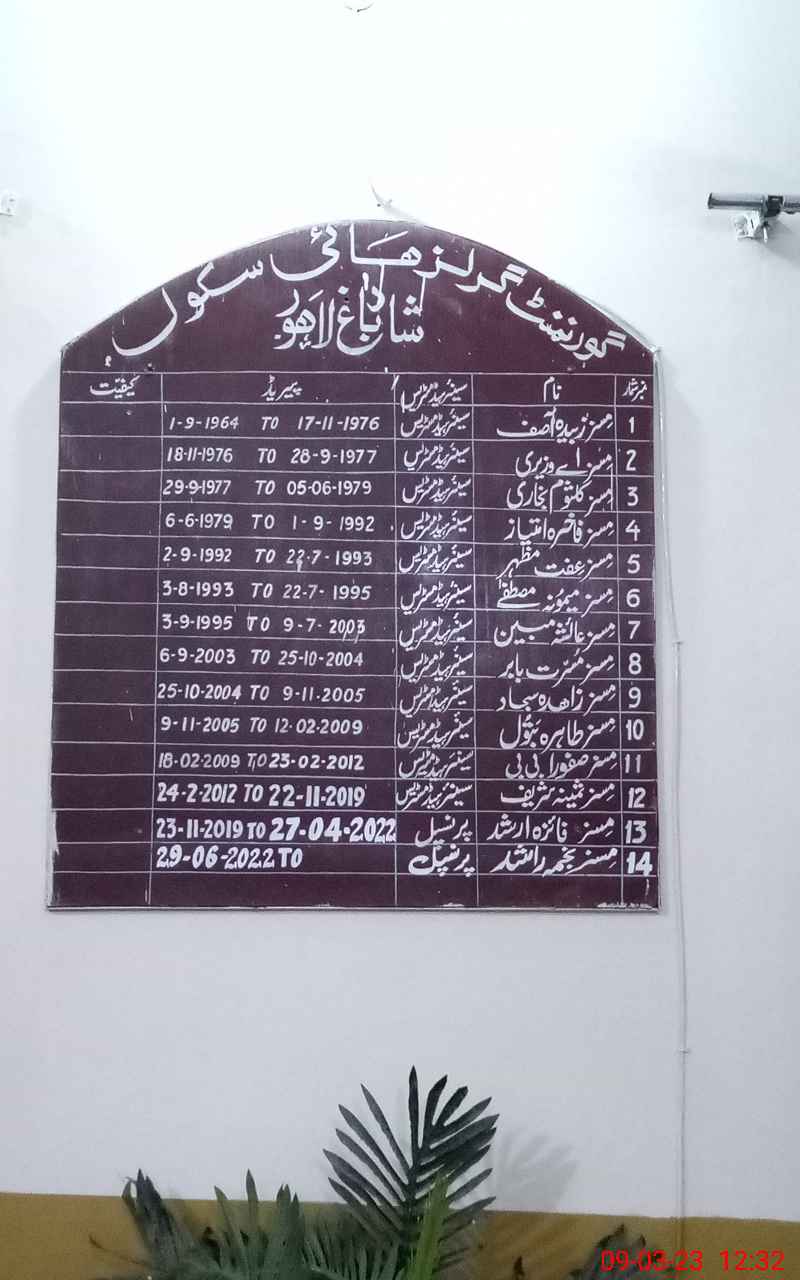 گورنمنٹ گرلز ہائی سکول
شاد باغ لاہور
نمبر شمار نام سینئر ہیڈ مسٹریس پیریڈ کیفیت
1 مسز زبیدہ آصف سینئر ہیڈ مسٹریس 1-9-1964 TO 17-11-1976
2 مسز اے وزیری سینئر ہیڈ مسٹریس 18-11-1976 TO 28-9-1977
3 مسز کلثوم بخاری سینئر ہیڈ مسٹریس 29-9-1977 TO 05-06-1979
4 مسز فاخرہ امتیاز سینئر ہیڈ مسٹریس 6-6-1979 TO 1-9-1992
5 مسز عفت مظہر سینئر ہیڈ مسٹریس 2-9-1992 TO 22-7-1993
6 مسز میمونہ مصطفے سینئر ہیڈ مسٹریس 3-8-1993 TO 22-7-1995
7 مسز عائشہ مبین سینئر ہیڈ مسٹریس 3-9-1995 TO 9-7-2003
8 مسز مسرت بابر سینئر ہیڈ مسٹریس 6-9-2003 TO 25-10-2004
9 مسز زاھدہ سجاد سینئر ہیڈ مسٹریس 25-10-2004 TO 9-11-2005
10 مسز طاہرہ بتول سینئر ہیڈ مسٹریس 9-11-2005 TO 12-02-2009
11 مسز صفورا بی بی سینئر ہیڈ مسٹریس 18-02-2009 TO 23-02-2012
12 مسز ثمینہ شریف سینئر ہیڈ مسٹریس 24-2-2012 TO 22-11-2019
13 مسز فائزہ ارشد پرنسپل 23-11-2019 TO 27-04-2022
14 مسز نجمہ راشد پرنسپل 29-06-2022 TO
09-03-23 12:32